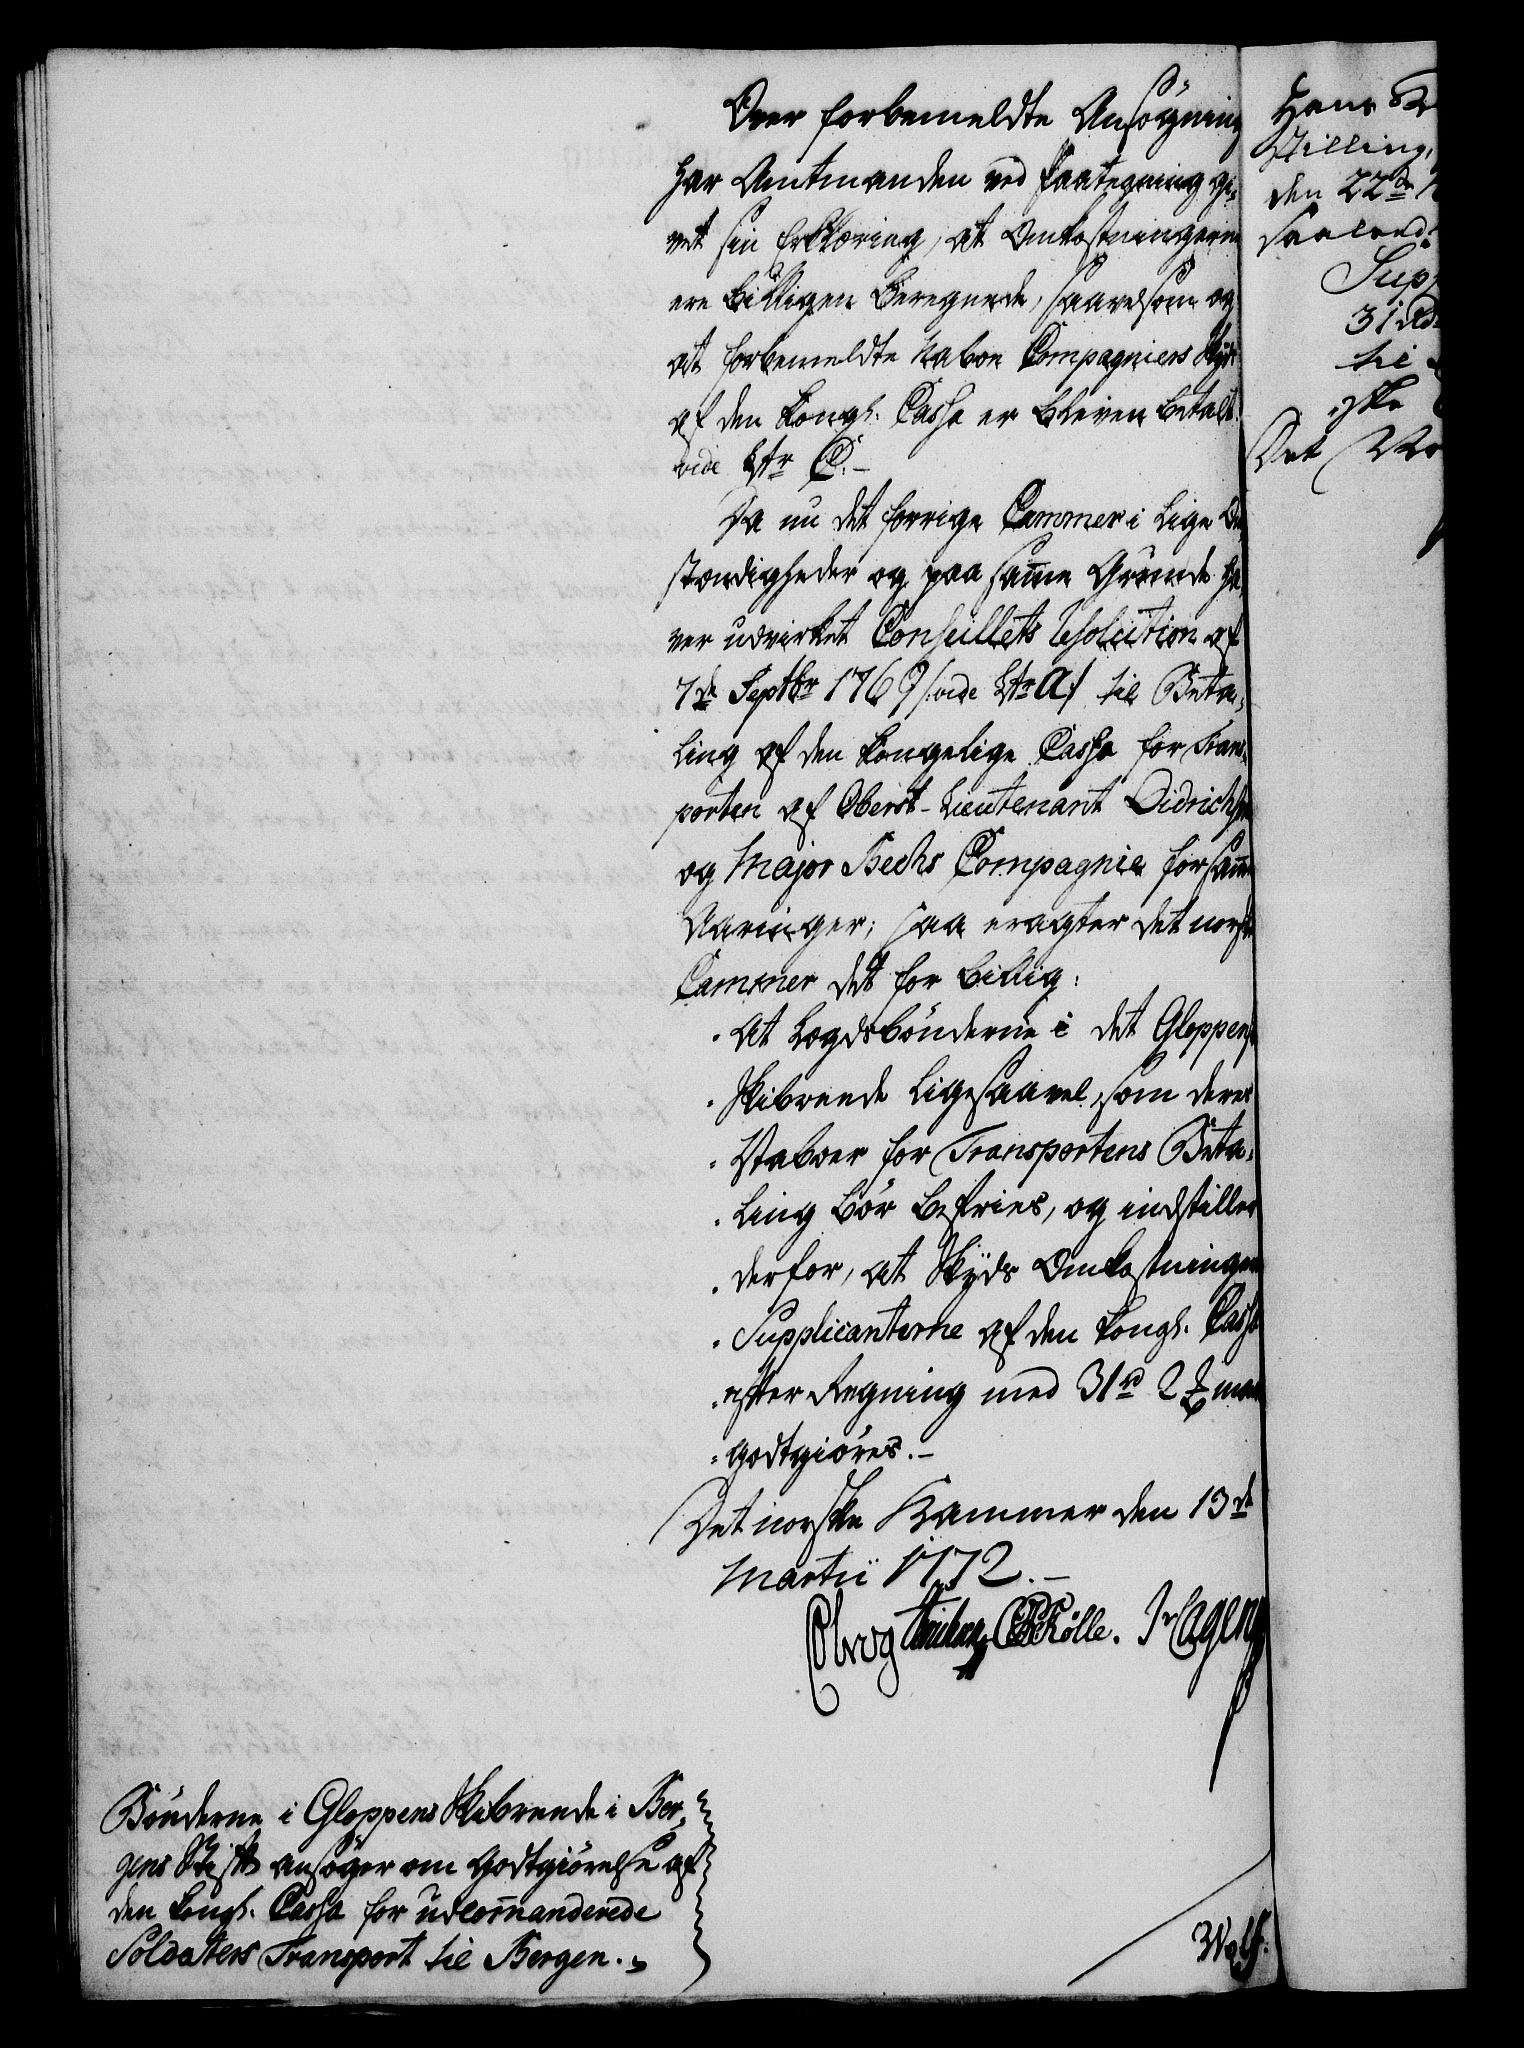 Over forbemeldte Ansøgning
har Amtmanden ved Paategning gi-
vet sin Erklæring, at Omkostningerne
ere billigen beregnede, saavelsom og
at forbemeldte Naboe Compagniers Skyds
af den Kongl: Cassa er bleven betalt
vide Ltr C.-
Da nu det forrige Cammer i lige Om-
stændigheder og paa samme Grunde ha-
ver udvirket Conseillets Resolution af
7de Septbr 1769 /:vide Ltr A:/ til Beta-
ling af den Kongelige Cassa for Trans-
porten af Oberst-Lieutenant Didrichsen
og Major Bechs Compagnie for samme
Aaringer; saa eragter det norske
Cammer det for billig:
At Lægdsbønderne i det Gloppens
Skibrede ligesaavel, som deres
Naboer for Transportens Beta-
ling bør befries, og indstiller
derfor, at Skyds Omkostningerne
Supplicanterne af den Kongl. Cassa
efter Regning med 31 rd 2 ß maa
godtgiøres.-
Det norske Kammer den 13de
Martii 1772.-
Holle.
Bønderne i Gloppens Skibrede i Ber-
gens Stift ansøger om Godtgiørelse af
den Kongl. Cassa for udcommanderede
Soldaters Transport til Bergen.
Hans
den 22de
31 Rd
til
Det